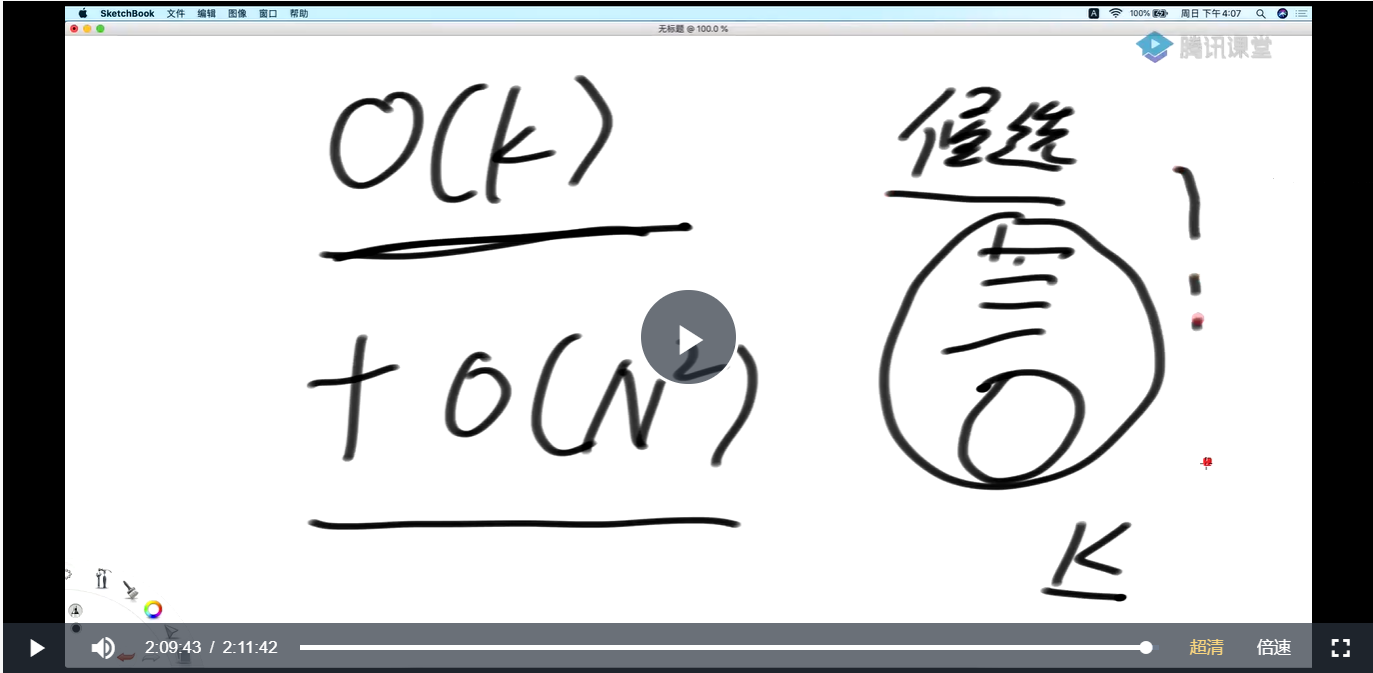 SketchBook 文件 编辑 图像 窗口 帮助
A 100% 周日 下午4:07
无标题 @ 100.0 %
腾讯课堂
O(k)
候选
+ O(N²)
K
2:09:43 / 2:11:42
超清 倍速